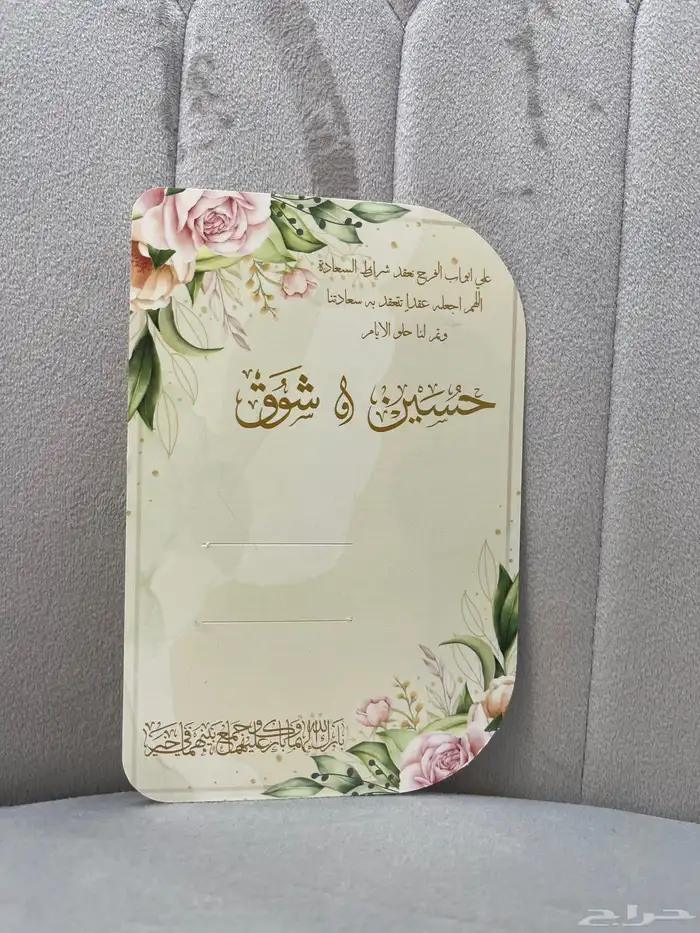 على ابواب الفرح نعقد شرائط السعادة
اللهم اجعله عقدا تنعقد به سعادتنا
وتمر لنا حلو الايام
حُسَين و شَوَق
بارك الله لهما وبارك عليهما وجمع بينهما في خير
حراج